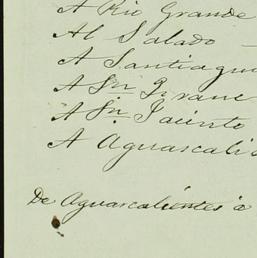 A Rio Grande
Al Salado
A Santiagui
A Sn. Franc
A Sn. Jacinto
A Aguascali
De Aguascalientes á